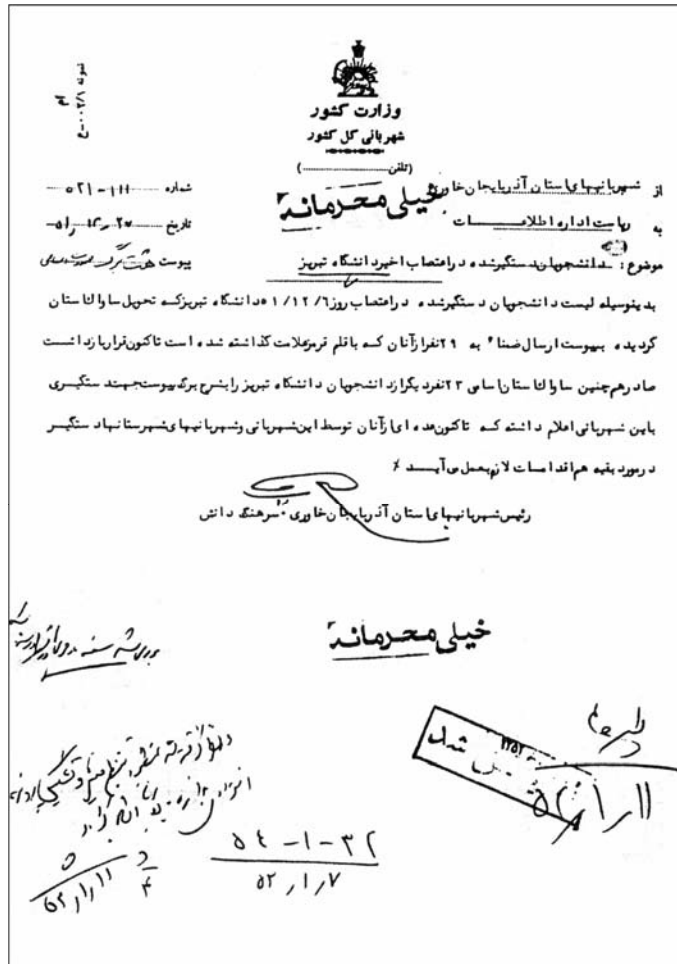 نمونه ۰۰۳/۱-ع
وزارت کشور
شهربانی کل کشور
(تلفن ............)
از شهربانیهای استان آذربایجان خاوری
شماره ۱۱۱-۵۲۱
خیلی محرمانه
به ریاست اداره اطلاعات
تاریخ ۵۱٫۱۲٫۲۷
موضوع : دانشجویان دستگیر شده در اعتصاب اخیر دانشگاه تبریز
پیوست هشت برگ
بدینوسیله لیست دانشجویان دستگیر شده در اعتصاب روز ۵۱/۱۲/۶ دانشگاه تبریز که تحویل ساواک استان
گردیده بپیوست ارسال ضمنا" به ۲۹ نفر از آنان که با قلم قرمز علامت گذاشته شده است تاکنون قرار بازداشت
صادر همچنین ساواک استان اسامی ۲۳ نفر دیگر از دانشجویان دانشگاه تبریز را بشرح برگ پیوست جهت دستگیری
باین شهربانی اعلام داشته که تاکنون عده ای از آنان توسط این شهربانی و شهربانیهای شهرستانها دستگیر
در مورد بقیه هم اقدامات لازم بعمل می آید ٪
رئیس شهربانیهای استان آذربایجان خاوری . سرهنگ دانش
خیلی محرمانه
۵۲٫۱٫۱۱
۳۲-۱-۵۴
۵۲٫۱٫۷
۵۲٫۱٫۱۱